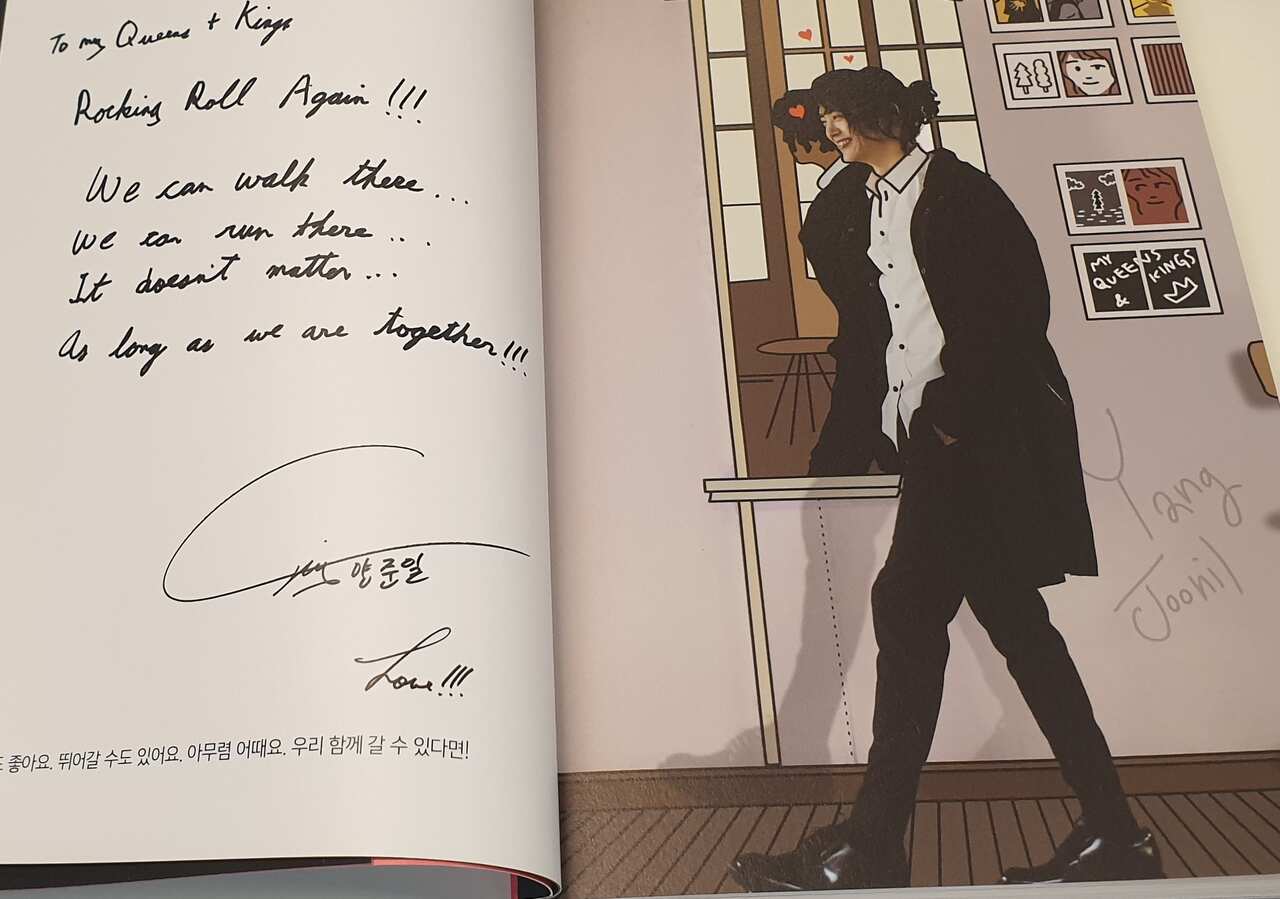 To my Queens + Kings
Rocking Roll Again!!!
We can walk there...
We can run there....
It doesn't matter...
As long as we are together!!!
양준일
Love!!!
좋아요. 뛰어갈 수도 있어요. 아무렴 어때요. 우리 함께 갈 수 있다면!
MY
QUEENS
KINGS
&
Yang
Joonil